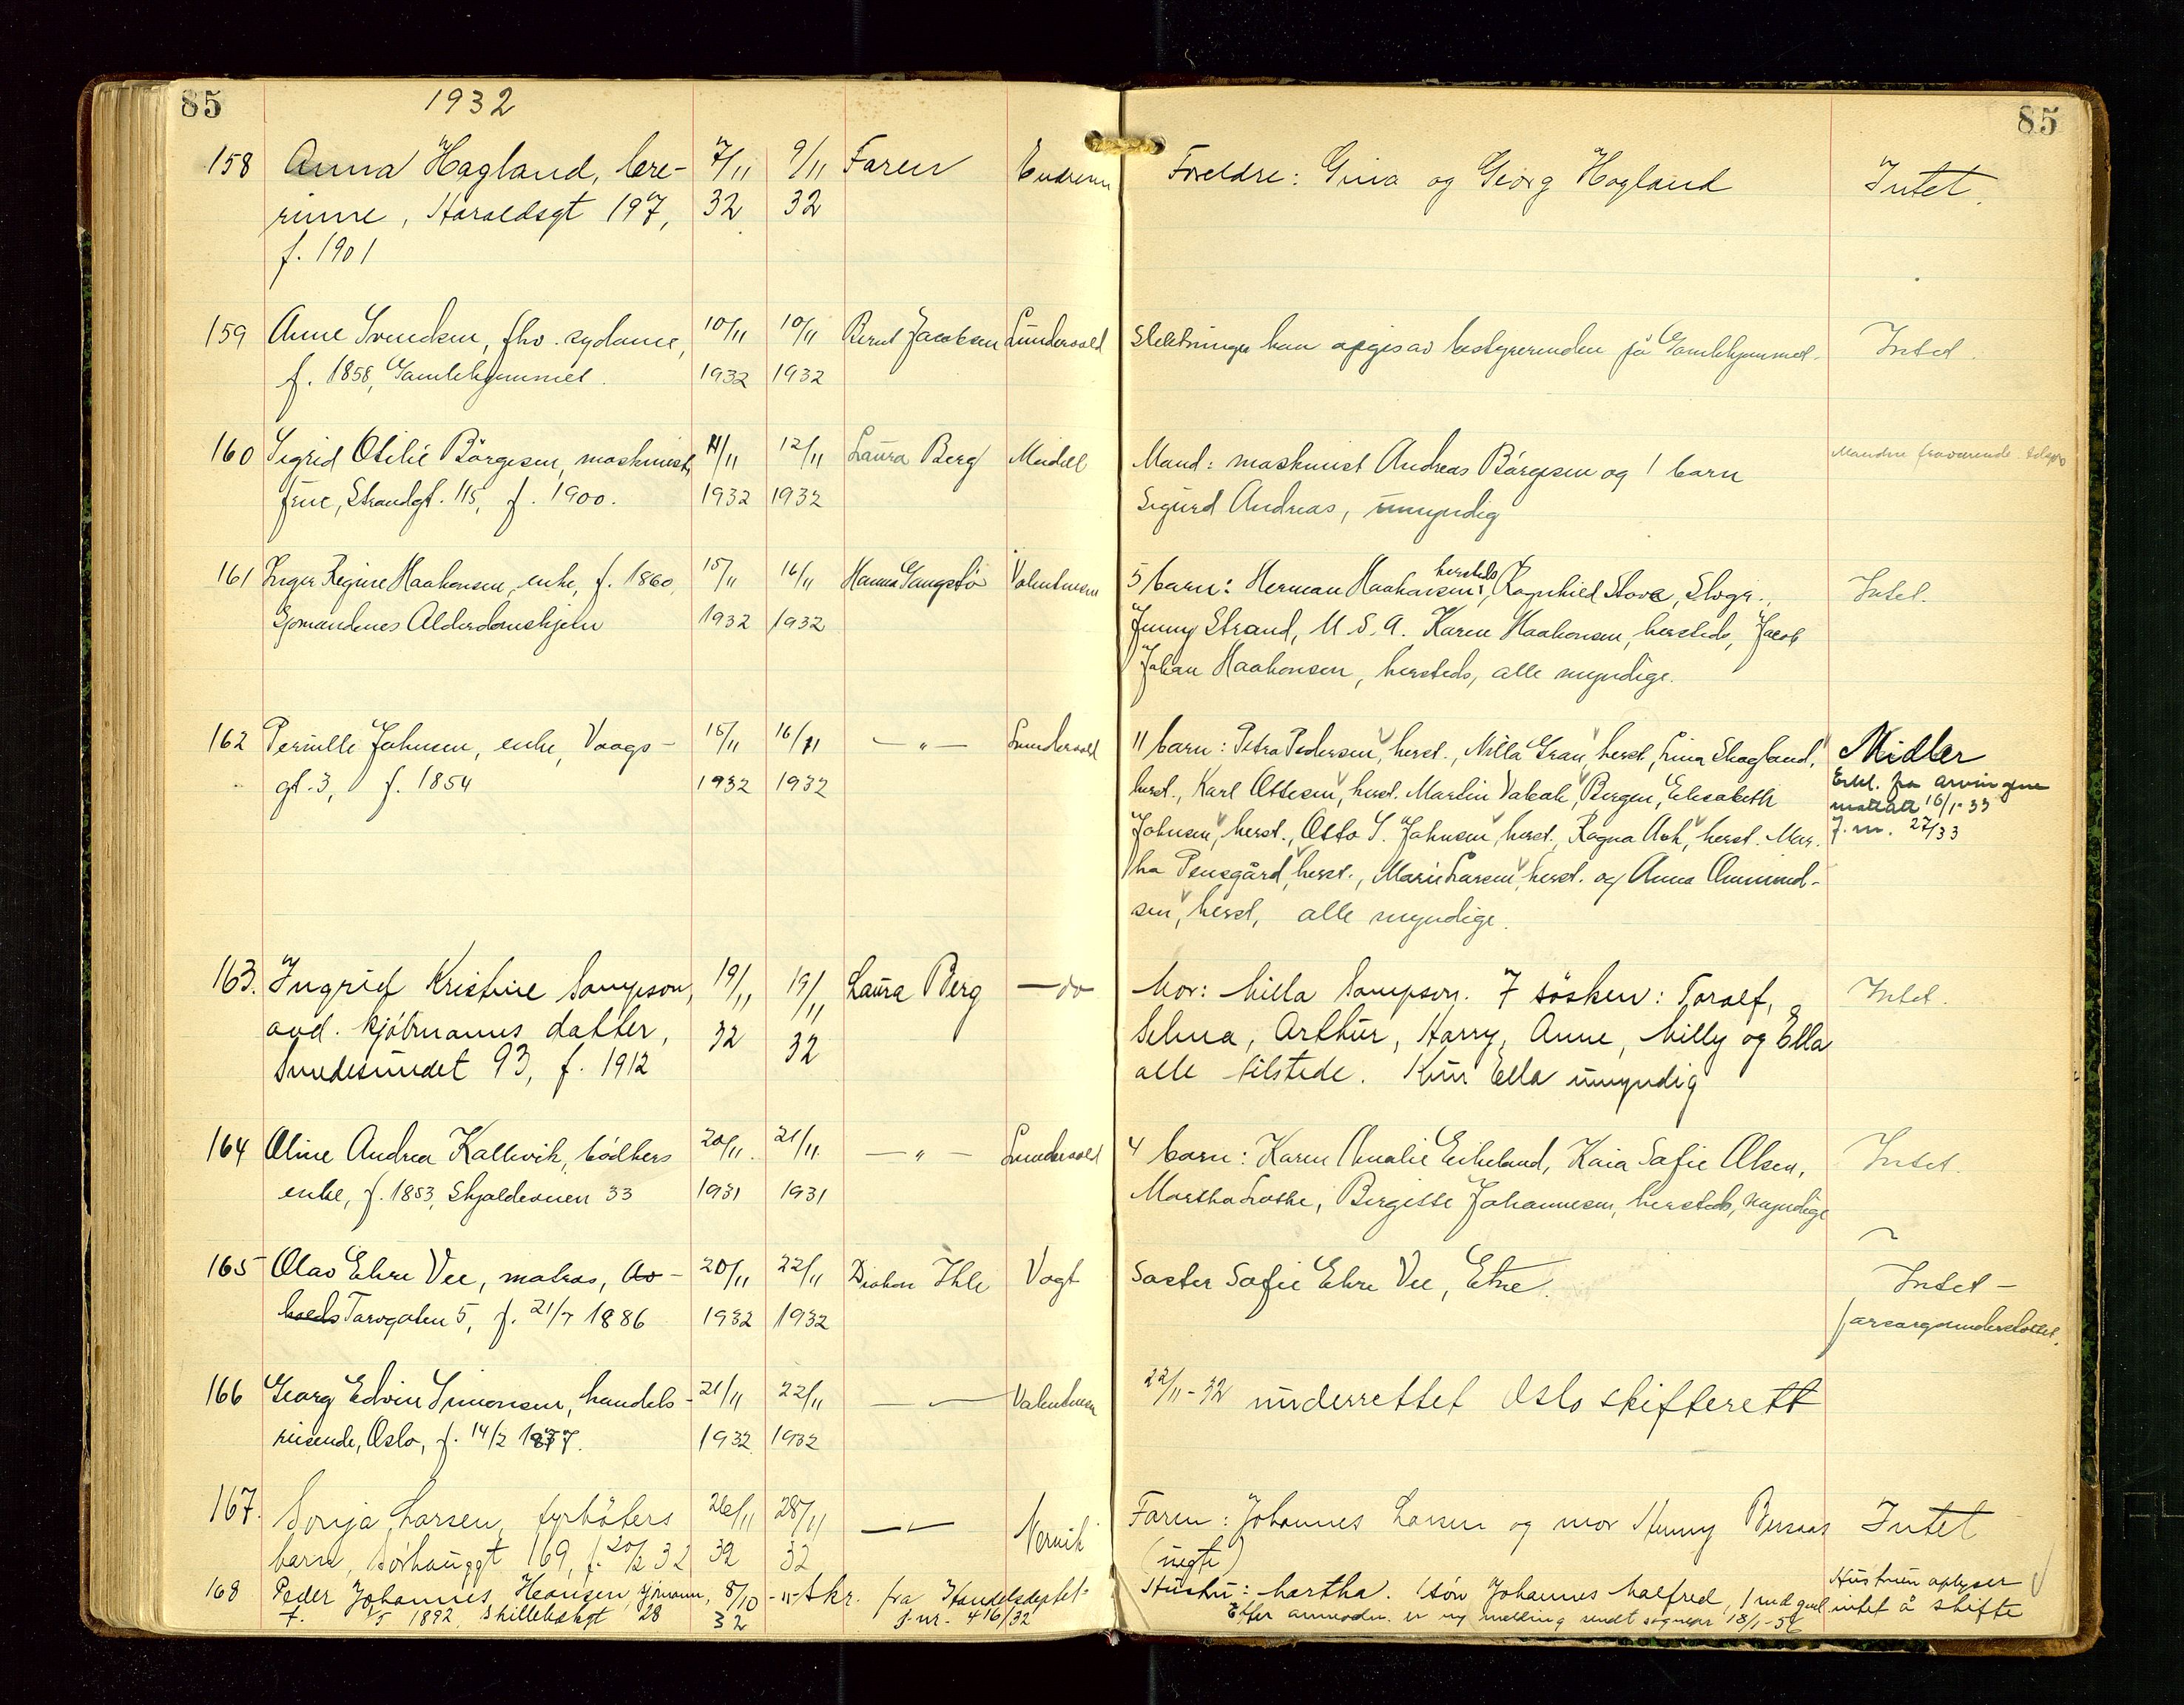 85
1932
85
158 Anna Hagland, lære- 7/11 9/11 Faren Endresen Foreldre: Gina og Georg Hagland Intet.
rinne, Haraldsgt 197, 32 32
f. 1901
159 Anne Svendsen, fhv. sydame, 10/11 10/11 Bernt Jacobsen Lundervold Slektninger kan opgis av bestyrerinden på Gamlehjemmet. Intet.
f. 1858, Gamlehjemmet. 1932 1932
160 Sigrid Otilie Börgesen, maskinist 11/11 12/11 Laura Berg Meidell Mand: maskinist Andreas Börgesen og 1 barn Mandne fraværende
frue, Strandgt. 115, f. 1900. 1932 1932 Sigurd Andreas, umyndig
161 Inger Regine Haakonsen, enke, f. 1860, 15/11 16/11 Hanna Gangstö Valentinsen 5 barn: Herman Haakonsen, hersteds, Ragnhild Stova, Slogr., Intet.
Sjömandenes Alderdomshjem 1932 1932 Jenny Strand, U.S.A. Karen Haakonsen, hersteds, Jacob
Johan Haakonsen, hersteds, alle myndige.
162 Pernille Johnsen, enke, Vaags- 15/11 16/11 — " — Lundervold 11 barn: Petra Pedersen, herst., Nilla Gran, herst, Lina Skagland, Midler
gt. 3, f. 1854 1932 1932 herst., Karl Ottesen, herst. Martin Vakak, Bergen, Elisabeth Erkl. fra arvingene
Johnsen, herst., Otto S. Johnsen, herst., Ragna Ask, herst. Mar- mottatt 16/1-33
tha Pensgård, herst., Marie Larsen, herst. og Anna Ommund- J.nr. 27/33
sen, herst, alle myndige.
163. Ingrid Kristine Sampson, 19/11 19/11 Laura Berg — do Mor: Milla Sampson. 7 søsken: Toralf, Intet.
avd. kjöbmanns datter, 32 32 Selma, Arthur, Harry, Anne, Milly og Ella
Smedesundet 93, f. 1912 alle tilstede. Kun Ella umyndig
164 Oline Andrea Kallevik, bödkers 20/11. 21/11. — " — Lundervold 4 barn: Karen Amalie Eikeland, Kaia Sofie Olsen, Intet.
enke, f. 1853, Skjoldaveien 33 1931 1931 Martha Lothe, Birgitte Johannesen, hersteds, myndige
165 Olav Ekre Vee, matros, Av- 20/11 22/11 Diakon Ihle Vogt Søster Sofie Ekre Vee, Etne. Intet —
holds Torvgaten 5, f. 21/7 1886 1932 1932 forsorgsunderstøttet.
166 Georg Edvin Simonsen, handels- 21/11 22/11 — " — Valentinsen 22/11-32 underrettet Oslo skifterett
reisende, Oslo, f. 14/2 1877. 1932 1932
167. Sonja Larsen, fyrböters 26/11 28/11 — " — Nervik Faren: Johannes Larsen og mor Henny Intet
barn, Sörhauggt 169, f. 20/2 32 32 32 (ugifte)
168 Peder Johannes Hansen, sjömann, 8/10 - " - skr. fra Handelsdeptet- Hustru: Martha. Sön Johannes Malfred, Hustruen oplyser
f. 1892, Skillebekgt 28 32 J.nr. 416/32 Efter anmodn. er ny melding sendt 18/1-56 intet å skifte